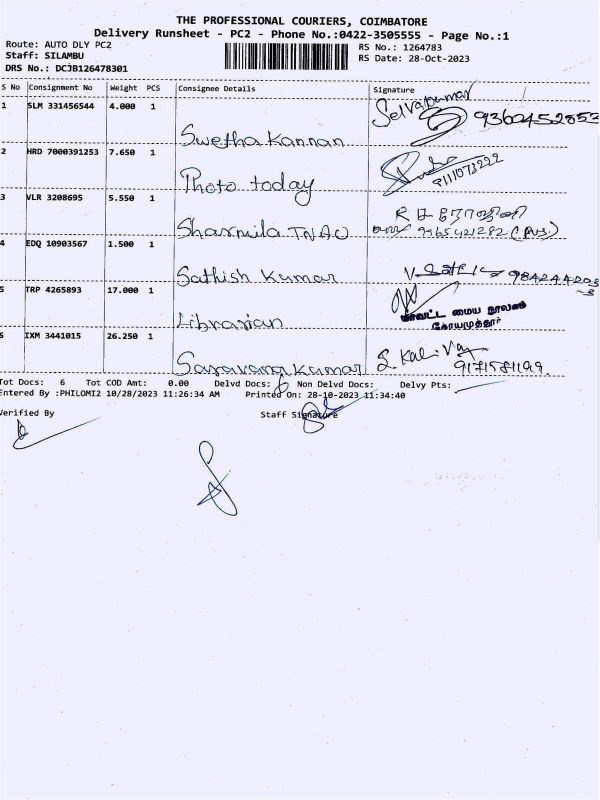 THE PROFESSIONAL COURIERS, COIMBATORE
Delivery Runsheet - PC2 - Phone No.:0422-3505555 - Page No.:1
Route: AUTO DLY PC2
RS No.: 1264783
Staff: SILAMBU
RS Date: 28-Oct-2023
DRS No.: DCJB126478301
S No Consignment No Weight PCS Consignee Details Signature
1 SLM 331456544 4.000 1
Selvakumar
9360452853
Swetha Kannan
2 HRD 7000391253 7.650 1
Photo today
3 VLR 3208695 5.550 1
Sharmila TNAU
9365421282
4 EDQ 10903567 1.500 1
Sathish Kumar
5 TRP 4265893 17.000 1
மாவட்ட மைய நூலகம்
கோயமுத்தூர்
Librarian
6 IXM 3441015 26.250 1
9171581199
Saravana Kumar
Tot Docs: 6 Tot COD Amt: 0.00 Delvd Docs: 6 Non Delvd Docs: Delvy Pts:
Entered By :PHILOMI2 10/28/2023 11:26:34 AM Printed On: 28-10-2023 11:34:40
Verified By Staff Signature